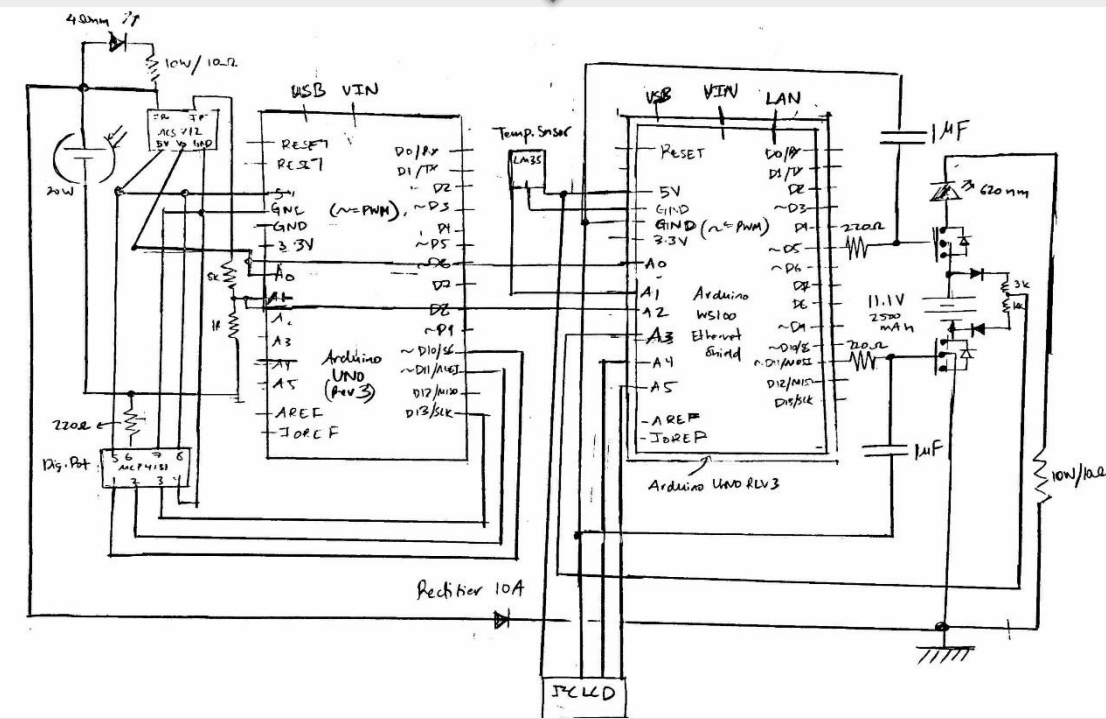 10W/10Ω
20W
5V
GND
5k
1k
220Ω
Dig. Pot
5 6 7 8
MCP4131
1 2 3 4
USB VIN
RESET
RESET
5V
GND
GND
3.3V
A0
A1
A2
A3
A4
A5
AREF
IOREF
(~=PWM)
D0/RX
D1/TX
D2
~D3
D4
~D5
~D6
D7
D8
~D9
~D10/SS
~D11/MOSI
D12/MISO
D13/SCK
Arduino
UNO
(Rev 3)
Temp. Sensor
LM35
USB VIN LAN
RESET
5V
GND
GND (~=PWM)
3.3V
A0
A1
A2
A3
A4
A5
-AREF
-IOREF
D0/RX
D1/TX
D2
~D3
D4
~D5
~D6
D7
~D9
~D10/SS
~D11/MOSI
D12/MISO
D13/SCK
Arduino
W5100
Ethernet
Shield
Arduino UNO REV3
1µF
620nm
220Ω
11.1V
2500
mAh
3k
1k
220Ω
1µF
10W/10Ω
Rectifier 10A
I²C LCD